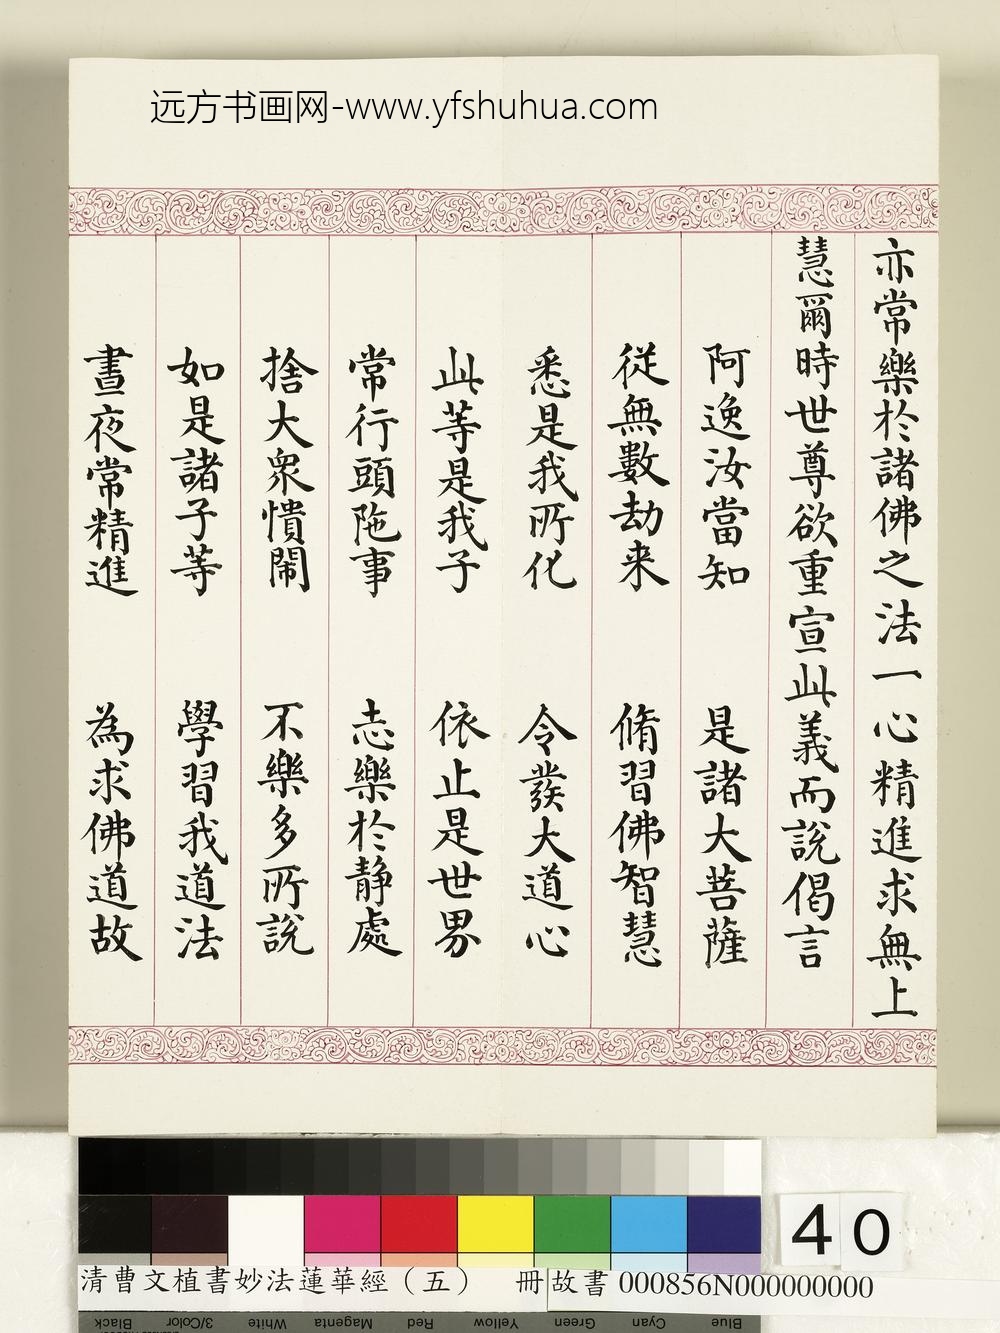 远方书画网-www.yfshuhua.com
亦常樂於諸佛之法一心精進求無上
慧爾時世尊欲重宣此義而說偈言
阿逸汝當知 是諸大菩薩
從無數劫来 脩習佛智慧
悉是我所化 令發大道心
此等是我子 依止是世界
常行頭陁事 志樂於静處
捨大衆憒閙 不樂多所說
如是諸子等 學習我道法
晝夜常精進 為求佛道故
40
清曹文植書妙法蓮華經（五） 冊 故書 000856N000000000
Black 3/Color White Magenta Red Yellow Green Cyan Blue